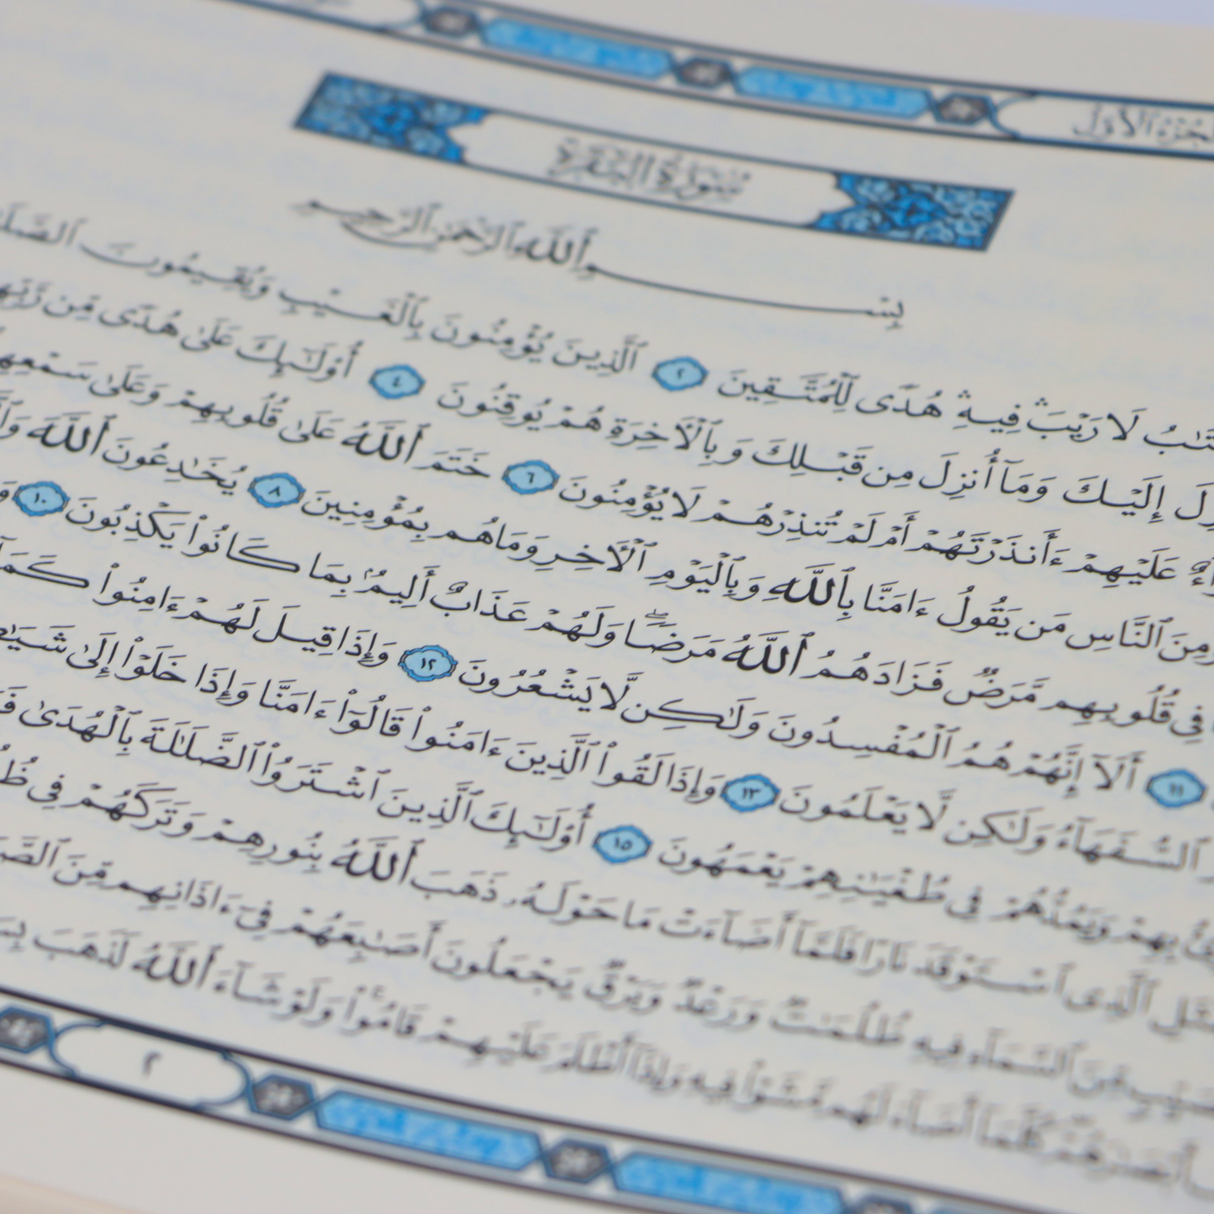 الجزء الأول
سورة البقرة
بِسْمِ ٱللَّهِ ٱلرَّحْمَٰنِ ٱلرَّحِيمِ
لَا رَيْبَ ۛ فِيهِ ۛ هُدًى لِّلْمُتَّقِينَ ٢ ٱلَّذِينَ يُؤْمِنُونَ بِٱلْغَيْبِ وَيُقِيمُونَ
إِلَيْكَ وَمَآ أُنزِلَ مِن قَبْلِكَ وَبِٱلْأَخِرَةِ هُمْ يُوقِنُونَ ٤ أُوْلَٰٓئِكَ عَلَىٰ هُدًى مِّن
عَلَيْهِمْ ءَأَنذَرْتَهُمْ أَمْ لَمْ تُنذِرْهُمْ لَا يُؤْمِنُونَ ٦ خَتَمَ ٱللَّهُ عَلَىٰ قُلُوبِهِمْ وَعَلَىٰ
مِنَ ٱلنَّاسِ مَن يَقُولُ ءَامَنَّا بِٱللَّهِ وَبِٱلْيَوْمِ ٱلْأَخِرِ وَمَاهُم بِمُؤْمِنِينَ ٨ يُخَٰدِعُونَ ٱللَّهَ
فِي قُلُوبِهِم مَّرَضٌ فَزَادَهُمُ ٱللَّهُ مَرَضًا ۖ وَلَهُمْ عَذَابٌ أَلِيمُۢ بِمَا كَانُوا۟ يَكْذِبُونَ ١٠
١١ أَلَآ إِنَّهُمْ هُمُ ٱلْمُفْسِدُونَ وَلَٰكِن لَّا يَشْعُرُونَ ١٢ وَإِذَا قِيلَ لَهُمْ ءَامِنُوا۟
ٱلسُّفَهَآءُ وَلَٰكِن لَّا يَعْلَمُونَ ١٣ وَإِذَا لَقُوا۟ ٱلَّذِينَ ءَامَنُوا۟ قَالُوٓا۟ ءَامَنَّا وَإِذَا خَلَوْا۟ إِلَىٰ
بِهِمْ وَيَمُدُّهُمْ فِي طُغْيَٰنِهِمْ يَعْمَهُونَ ١٥ أُوْلَٰٓئِكَ ٱلَّذِينَ ٱشْتَرَوُا۟ ٱلضَّلَٰلَةَ بِٱلْهُدَىٰ
ٱلَّذِى ٱسْتَوْقَدَ نَارًا فَلَمَّآ أَضَآءَتْ مَا حَوْلَهُۥ ذَهَبَ ٱللَّهُ بِنُورِهِمْ وَتَرَكَهُمْ فِي
مِّنَ ٱلسَّمَآءِ فِيهِ ظُلُمَٰتٌ وَرَعْدٌ وَبَرْقٌ يَجْعَلُونَ أَصَٰبِعَهُمْ فِىٓ ءَاذَانِهِم مِّنَ
كُلَّمَآ أَضَآءَ لَهُم مَّشَوْا۟ فِيهِ وَإِذَآ أَظْلَمَ عَلَيْهِمْ قَامُوا۟ وَلَوْ شَآءَ ٱللَّهُ لَذَهَبَ
٢